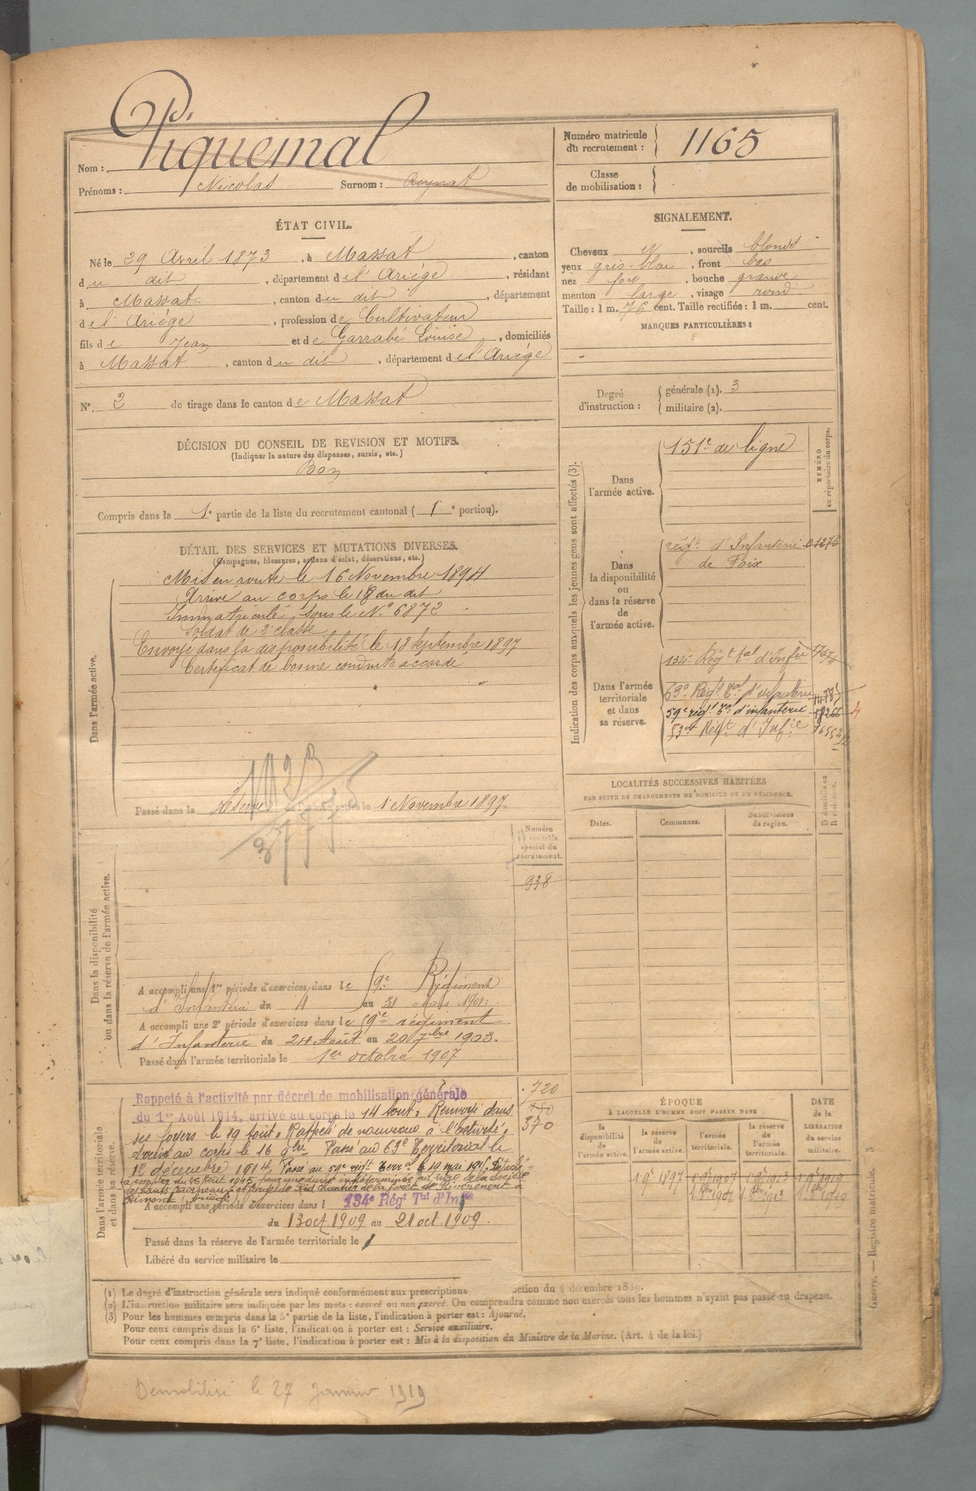 Nom : Piquemal
Prénoms : Nicolas Surnom :
Numéro matricule du recrutement : 1165
Classe de mobilisation :
ÉTAT CIVIL.
Né le 29 Avril 1873, à Massat, canton
du dit, département de l'Ariège, résidant
à Massat, canton du dit, département
de l'Ariège, profession de Cultivateur
fils de Jean et de Garrabé Louise, domiciliés
à Massat, canton du dit, département de l'Ariège
N° 2 de tirage dans le canton de Massat
SIGNALEMENT.
Cheveux et, sourcils blonds
yeux gris-bleu, front bas
nez fort, bouche grande
menton large, visage rond
Taille : 1 m. 76 cent. Taille rectifiée : 1 m. cent.
MARQUES PARTICULIÈRES :
Degré d'instruction : générale (1). 3
militaire (2).
DÉCISION DU CONSEIL DE REVISION ET MOTIFS.
(Indiquer la nature des dispenses, sursis, etc.)
Bon
Compris dans la 1e partie de la liste du recrutement cantonal (1e portion).
DÉTAIL DES SERVICES ET MUTATIONS DIVERSES.
(Campagnes, blessures, actions d'éclat, décorations, etc.)
Dans l'armée active.
Mis en route le 16 Novembre 1894
Arrivé au corps le 18 du dit
Immatriculé sous le N° 6872
Soldat de 2e classe
Envoyé dans la disponibilité le 18 Septembre 1897
Certificat de bonne conduite accordé
Passé dans la Réserve le 1 Novembre 1897
Indication des corps auxquels les jeunes gens sont affectés (3).
NUMÉRO au répertoire du corps.
Dans l'armée active. 151e de ligne
Dans la disponibilité ou dans la réserve de l'armée active.
régt d'Infanterie 01276
de Foix
Dans l'armée territoriale et dans sa réserve.
134e Régt tal d'Infie
63e Régt tal d'infanterie
59e régt tal d'infanterie
53me Régt d'Infie
LOCALITÉS SUCCESSIVES HABITÉES
PAR SUITE DE CHANGEMENTS DE DOMICILE OU DE RÉSIDENCE.
Dates. Communes. Subdivisions de région. D domicile ou R résidence.
Dans la disponibilité ou dans la réserve de l'armée active.
Numéro au contrôle spécial du recrutement.
938
A accompli une 1re période d'exercices dans le 59e Régiment
d'Infanterie du 4 au 31 mars 1901
A accompli une 2e période d'exercices dans le 59e régiment
d'Infanterie du 24 Août au 20 7bre 1903.
Passé dans l'armée territoriale le 1er octobre 1907
Dans l'armée territoriale et dans sa réserve.
720
370
Rappelé à l'activité par décret de mobilisation générale
du 1er Août 1914, arrivé au corps le 14 août. Renvoyé dans
ses foyers le 19 août. Rappelé de nouveau à l'activité,
arrivé au corps le 16 9bre Passé au 63e Territorial le
12 décembre 1914, Passé au 59e régt Terral le 19 mai 1915. Détaché
A accompli une période d'exercices dans l 134e Régt Tal d'Infie
du 13 oct 1909 au 21 oct 1909.
Passé dans la réserve de l'armée territoriale le
Libéré du service militaire le
ÉPOQUE
À LAQUELLE L'HOMME DOIT PASSER DANS
DATE de la LIBÉRATION du service militaire.
la disponibilité de l'armée active. la réserve de l'armée active. l'armée territoriale. la réserve de l'armée territoriale.
(1) Le degré d'instruction générale sera indiqué conformément aux prescriptions
(2) L'instruction militaire sera indiquée par les mots : exercé ou non exercé. On comprendra comme non exercés tous les hommes n'ayant pas passé au drapeau.
(3) Pour les hommes compris dans la 5e partie de la liste, l'indication à porter est : Ajourné.
Pour ceux compris dans la 6e liste, l'indication à porter est : Service auxiliaire.
Pour ceux compris dans la 7e liste, l'indication à porter est : Mis à la disposition du Ministre de la Marine. (Art. 4 de la loi.)
Guerre. — Registre matricule.
Démobilisé le 27 Janvier 1919